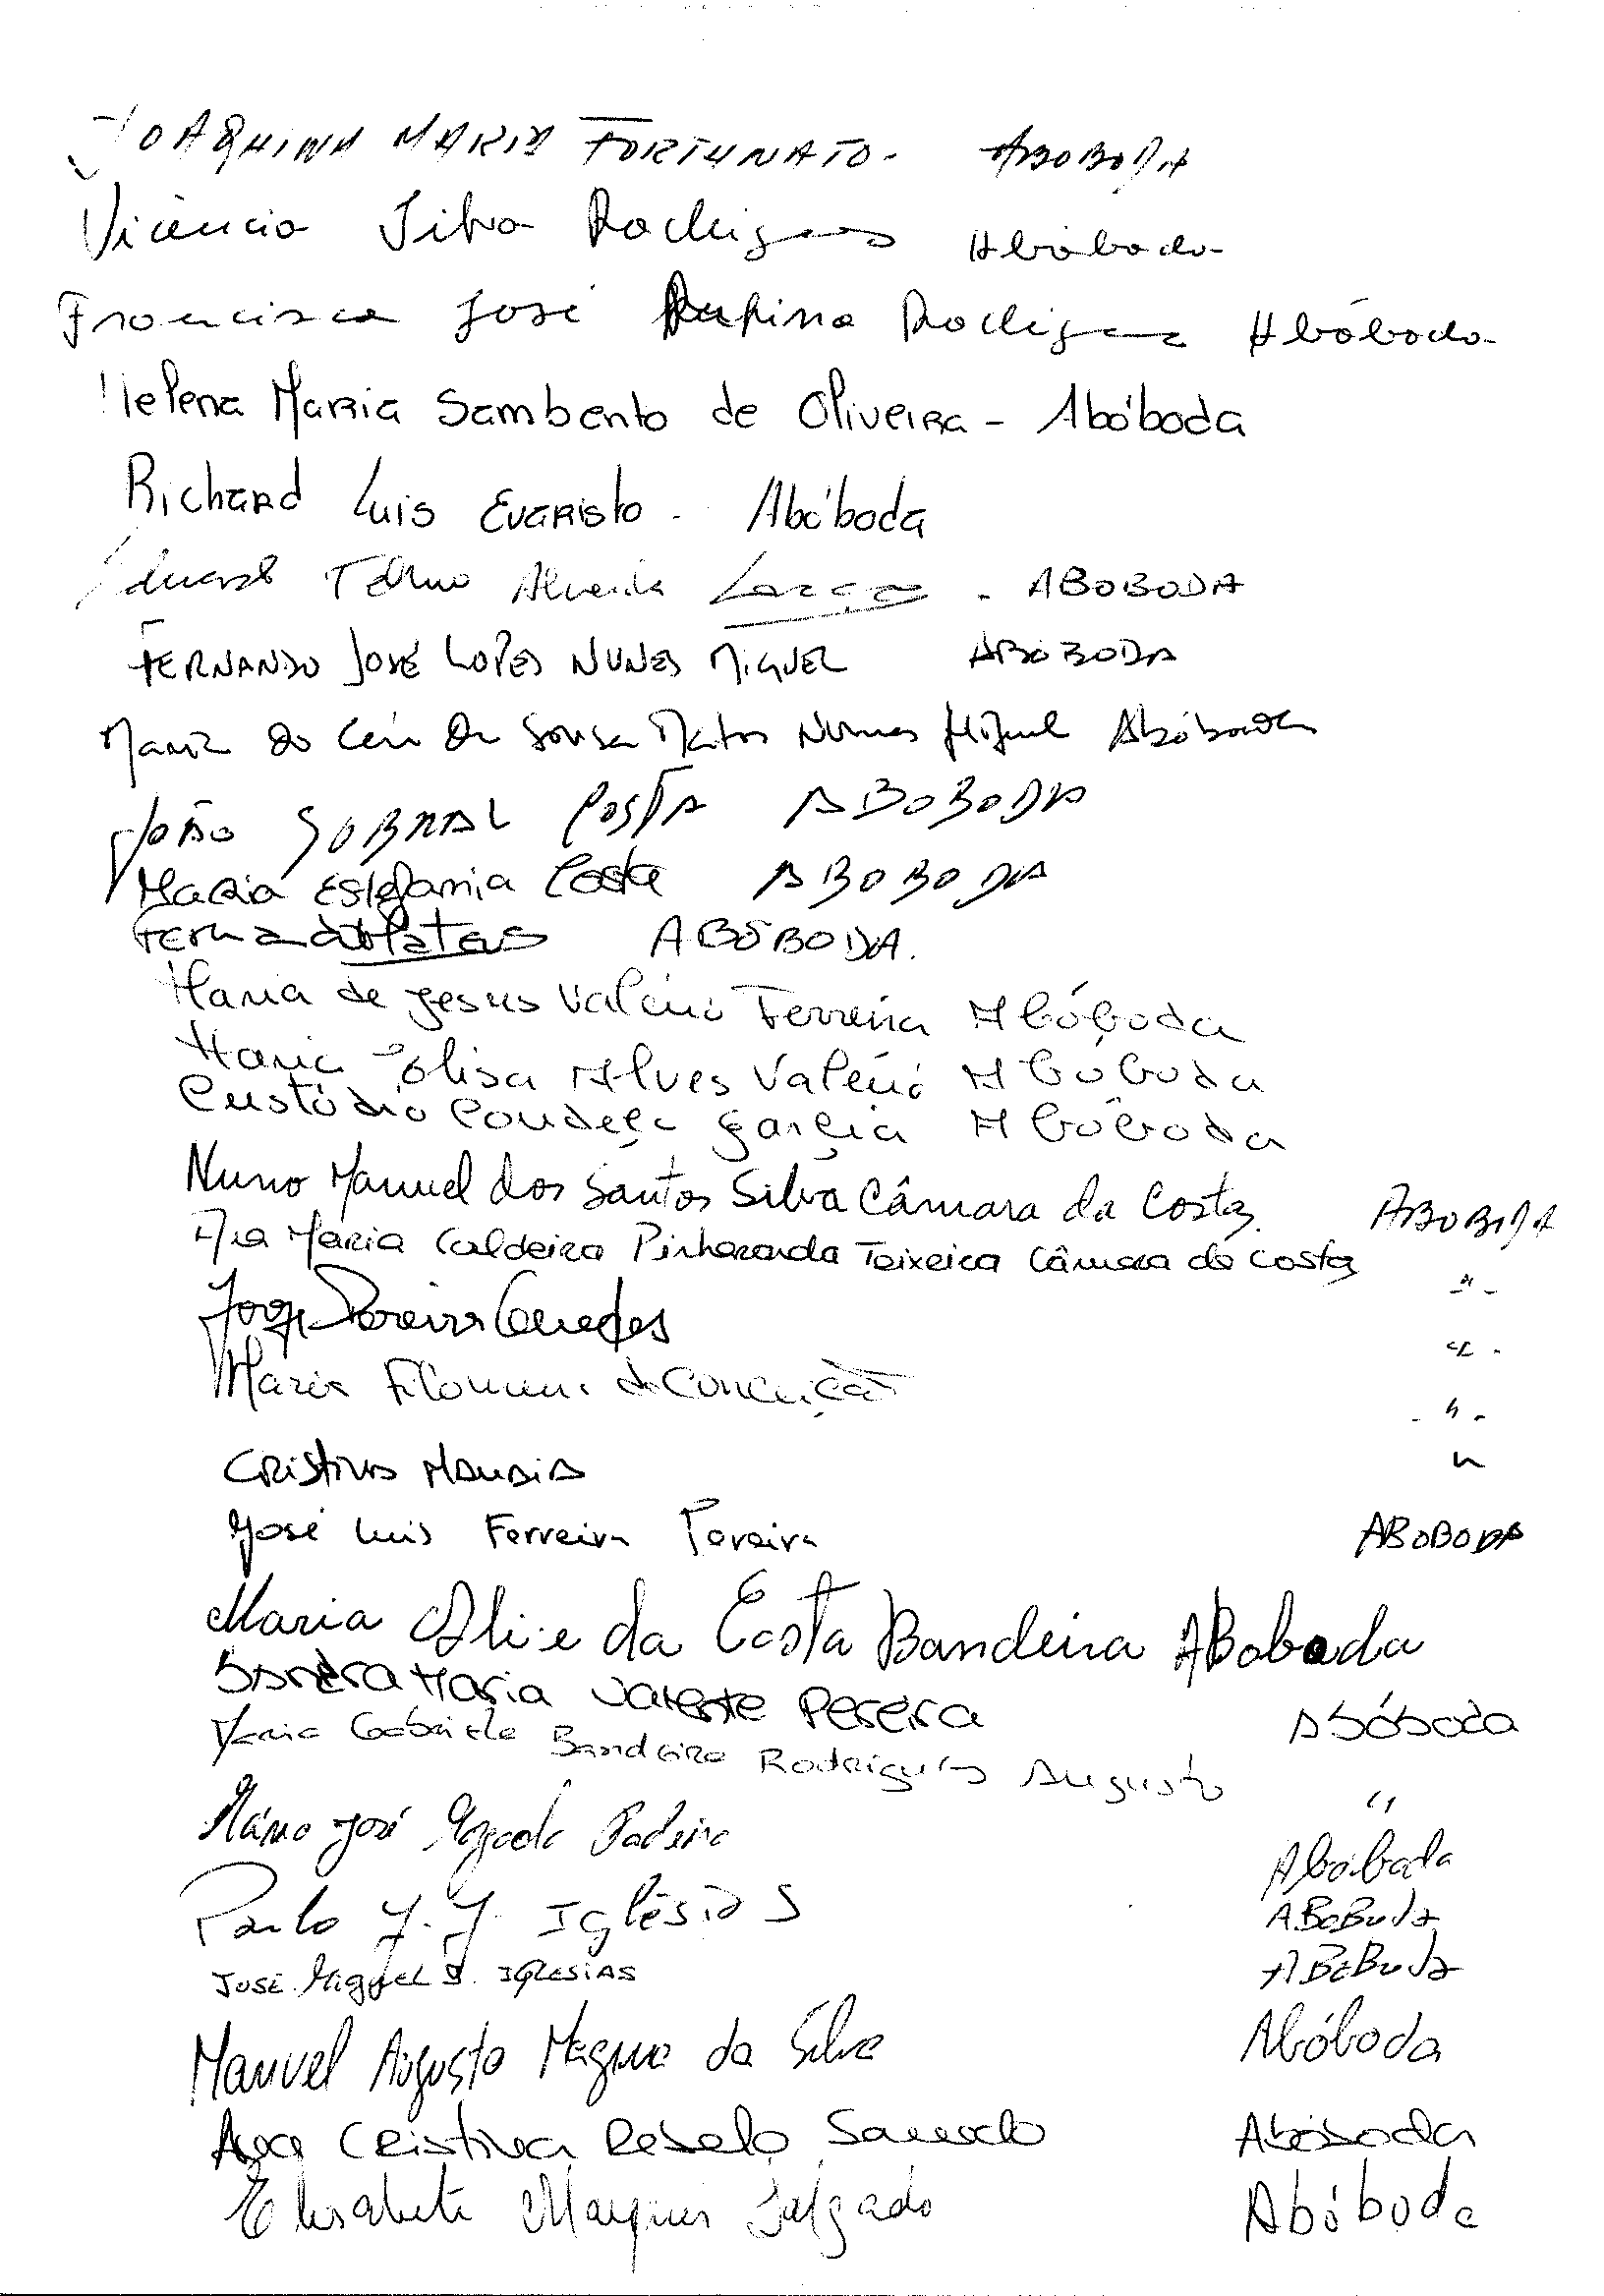 JOAQUINA MARIA FORTUNATO - ABOBODA
Vicência Silva Rodrigues Abóboda
Francisca José Rufina Rodrigues Abóboda
Helena Maria Sambento de Oliveira - Abóboda
Richard Luis Evaristo - Abóboda
Eduardo Telmo Almeida - ABOBODA
FERNANDO JOSÉ LOPES NUNES MIGUEL ABOBODA
Maria do Céu de Sousa Matos Nunes Miguel Abóboda
JOÃO SOBRAL COSTA ABOBODA
Maria Estefania Costa ABOBODA
Fernando Matos ABÓBODA.
Maria de Jesus Valério Ferreira Abóboda
Maria Elisa Alves Valério Abóboda
Custódio Condeça Garcia Abóboda
Nuno Manuel dos Santos Silva Câmara da Costa ABOBODA
Ana Maria Caldeira Pinharanda Teixeira Câmara da Costa -"-
Jorge Pereira Guedes " -
Maria Filomena da Conceição - " -
Cristina "
José Luis Ferreira Pereira ABOBODA
Maria Alice da Costa Bandeira ABoboda
Sandra Maria Valente Pereira Abóboda
Maria Gabriela Bandeira Rodrigues Augusto "
Mário José Padeiro Abóboda
Paulo J. J. Iglésias ABoBoda
José Miguel J. IGLESIAS ABoBoda
Manuel Augusto Magno da Silva Abóboda
Ana Cristina Rebelo Abóboda
Elisabete Marques Salgado Abóboda